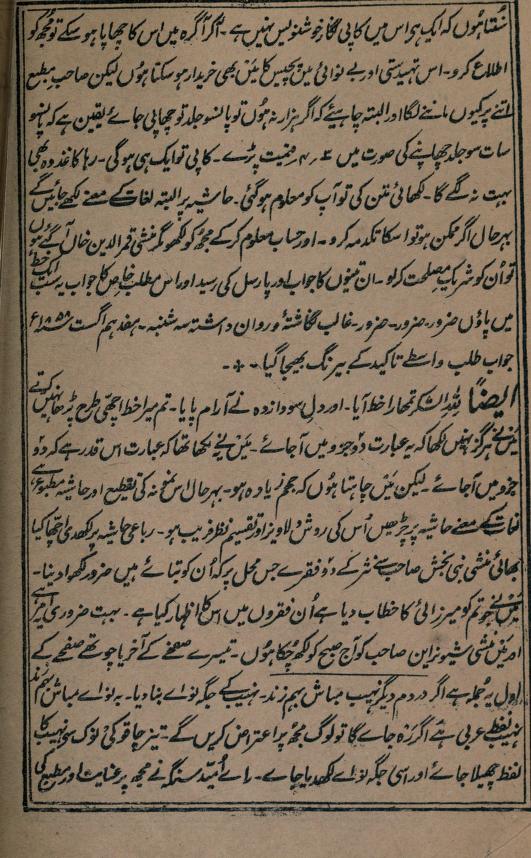 سُنتا ہُوں کہ ایک ہی اس میں کاپی نگار خوشنویس نہیں ہے۔ اگر آگرہ میں اس کا چھاپا ہو سکے تو مجھ کو
اطلاع کرو۔ اس تہیدستی اور بے نوائی میں پچیس کا میں بھی خریدار ہو سکتا ہوں لیکن صاحب مطبع
اتنے پر کیوں ماننے لگا اور البتہ چاہیئے کہ اگر ہزار نہ ہُوں تو پانسو جلد تو چھاپی جائے یقین ہے کہ پانسو
سات سو جلد چھاپنے کی صورت میں ۳؍ ۴؍ قیمت پڑے۔ کاپی تو ایک ہی ہوگی۔ رہا کاغذ وہ بھی
بہت نہ لگے گا۔ لکھائی متن کی تو آپ کو معلوم ہوگئی۔ حاشیہ پر البتہ لغات کے معنے لکھے جائیں گے
بہرحال اگر ممکن ہو تو اس کا تکدمہ کرو۔ اور حساب معلوم کر کے مجھ کو لکھو مگر منشی قمر الدین خاں آگئے ہوں
تو اُن کو شریک مصلحت کر لو۔ ان تینوں کا جواب اور پارسل کی رسید اور اس مطلب خاص کا جواب یہ سب ایک خط
میں پاؤں ضرور۔ ضرور۔ ضرور۔ غالب نگاشتۂ و روان داشتۂ سہ شنبہ۔ ہفدہم اگست ۱۸۵۸ء
جواب طلب واسطے تاکید کے بیرنگ بھیجا گیا
ایضاً للہ الشکر تمھارا خط آیا۔ اور دلِ سودا زدہ نے آرام پایا۔ تم میرا خط اچھی طرح پڑھا نہیں کرتے
میں نے ہرگز نہیں لکھا کہ یہ عبارت دو جزو میں آجائے۔ میں نے لکھا تھا کہ عبارت اس قدر ہے کہ دو
جزو میں آجائے۔ لیکن میں چاہتا ہوں کہ حجم زیادہ ہو۔ بہرحال اس نمونہ کی تقطیع اور حاشیہ مطبوع ہے
لغات کے معنے حاشیہ پر چڑھیں اُس کی روش دلاویز اور تقسیم نظر فریب ہو۔ رباعی حاشیہ پر لکھدی اچھا کیا
بھائی منشی نبی بخش صاحب سے نثر کے دو فقرے جس محل پر کہ اُن کو بتائے ہیں ضرور لکھوا دینا۔
میں نے جو تم کو میرزائی کا خطاب دیا ہے اُن فقروں میں اس کا اظہار کیا ہے۔ بہت ضروری امر ہے
اور میں منشی شیونراین صاحب کو آج صبح کو لکھ چکا ہوں۔ تیسرے صفحے کے آخر یا چوتھے صفحے کے
اول یہ جملہ ہے اگر در دم دیگر نہیب مباش بہم زند۔ نہیب کے جگہ نواے بنا دینا۔ بہ نواے مباش بہم زند
نہیب لفظ عربی ہے اگر رہ جائے گا تو لوگ مجھ پر اعتراض کریں گے۔ تیز چاقو کی نوک سے نہیب کا
لفظ چھیلا جائے اور اسی جگہ نواے لکھ دیا جائے۔ رائے اُمید سنگہ نے مجھ پر عنایت اور مطبع کی